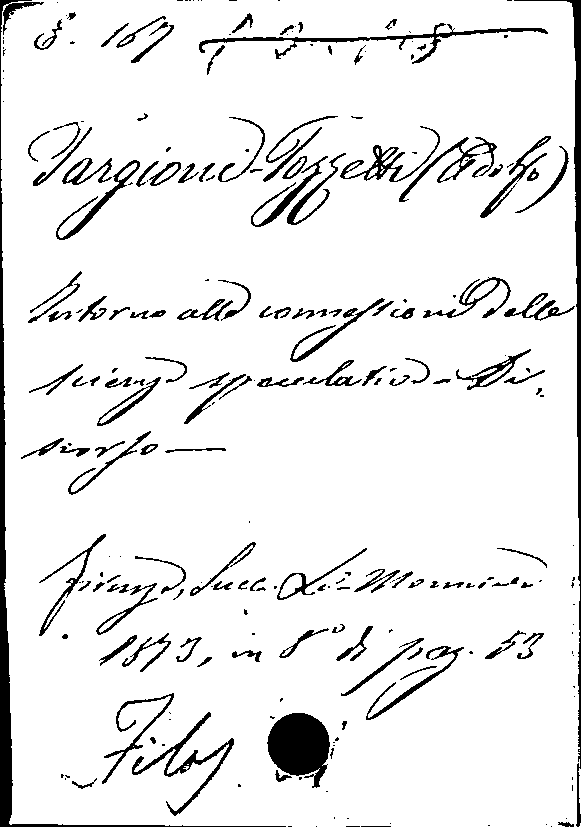 E. 167
Targioni-Tozzetti (Adolfo)
Intorno alle connessioni delle
scienze speculative - Di-
scorso —
Firenze, Succ. Le Monnier
1873, in 8° di pag. 53
Filos